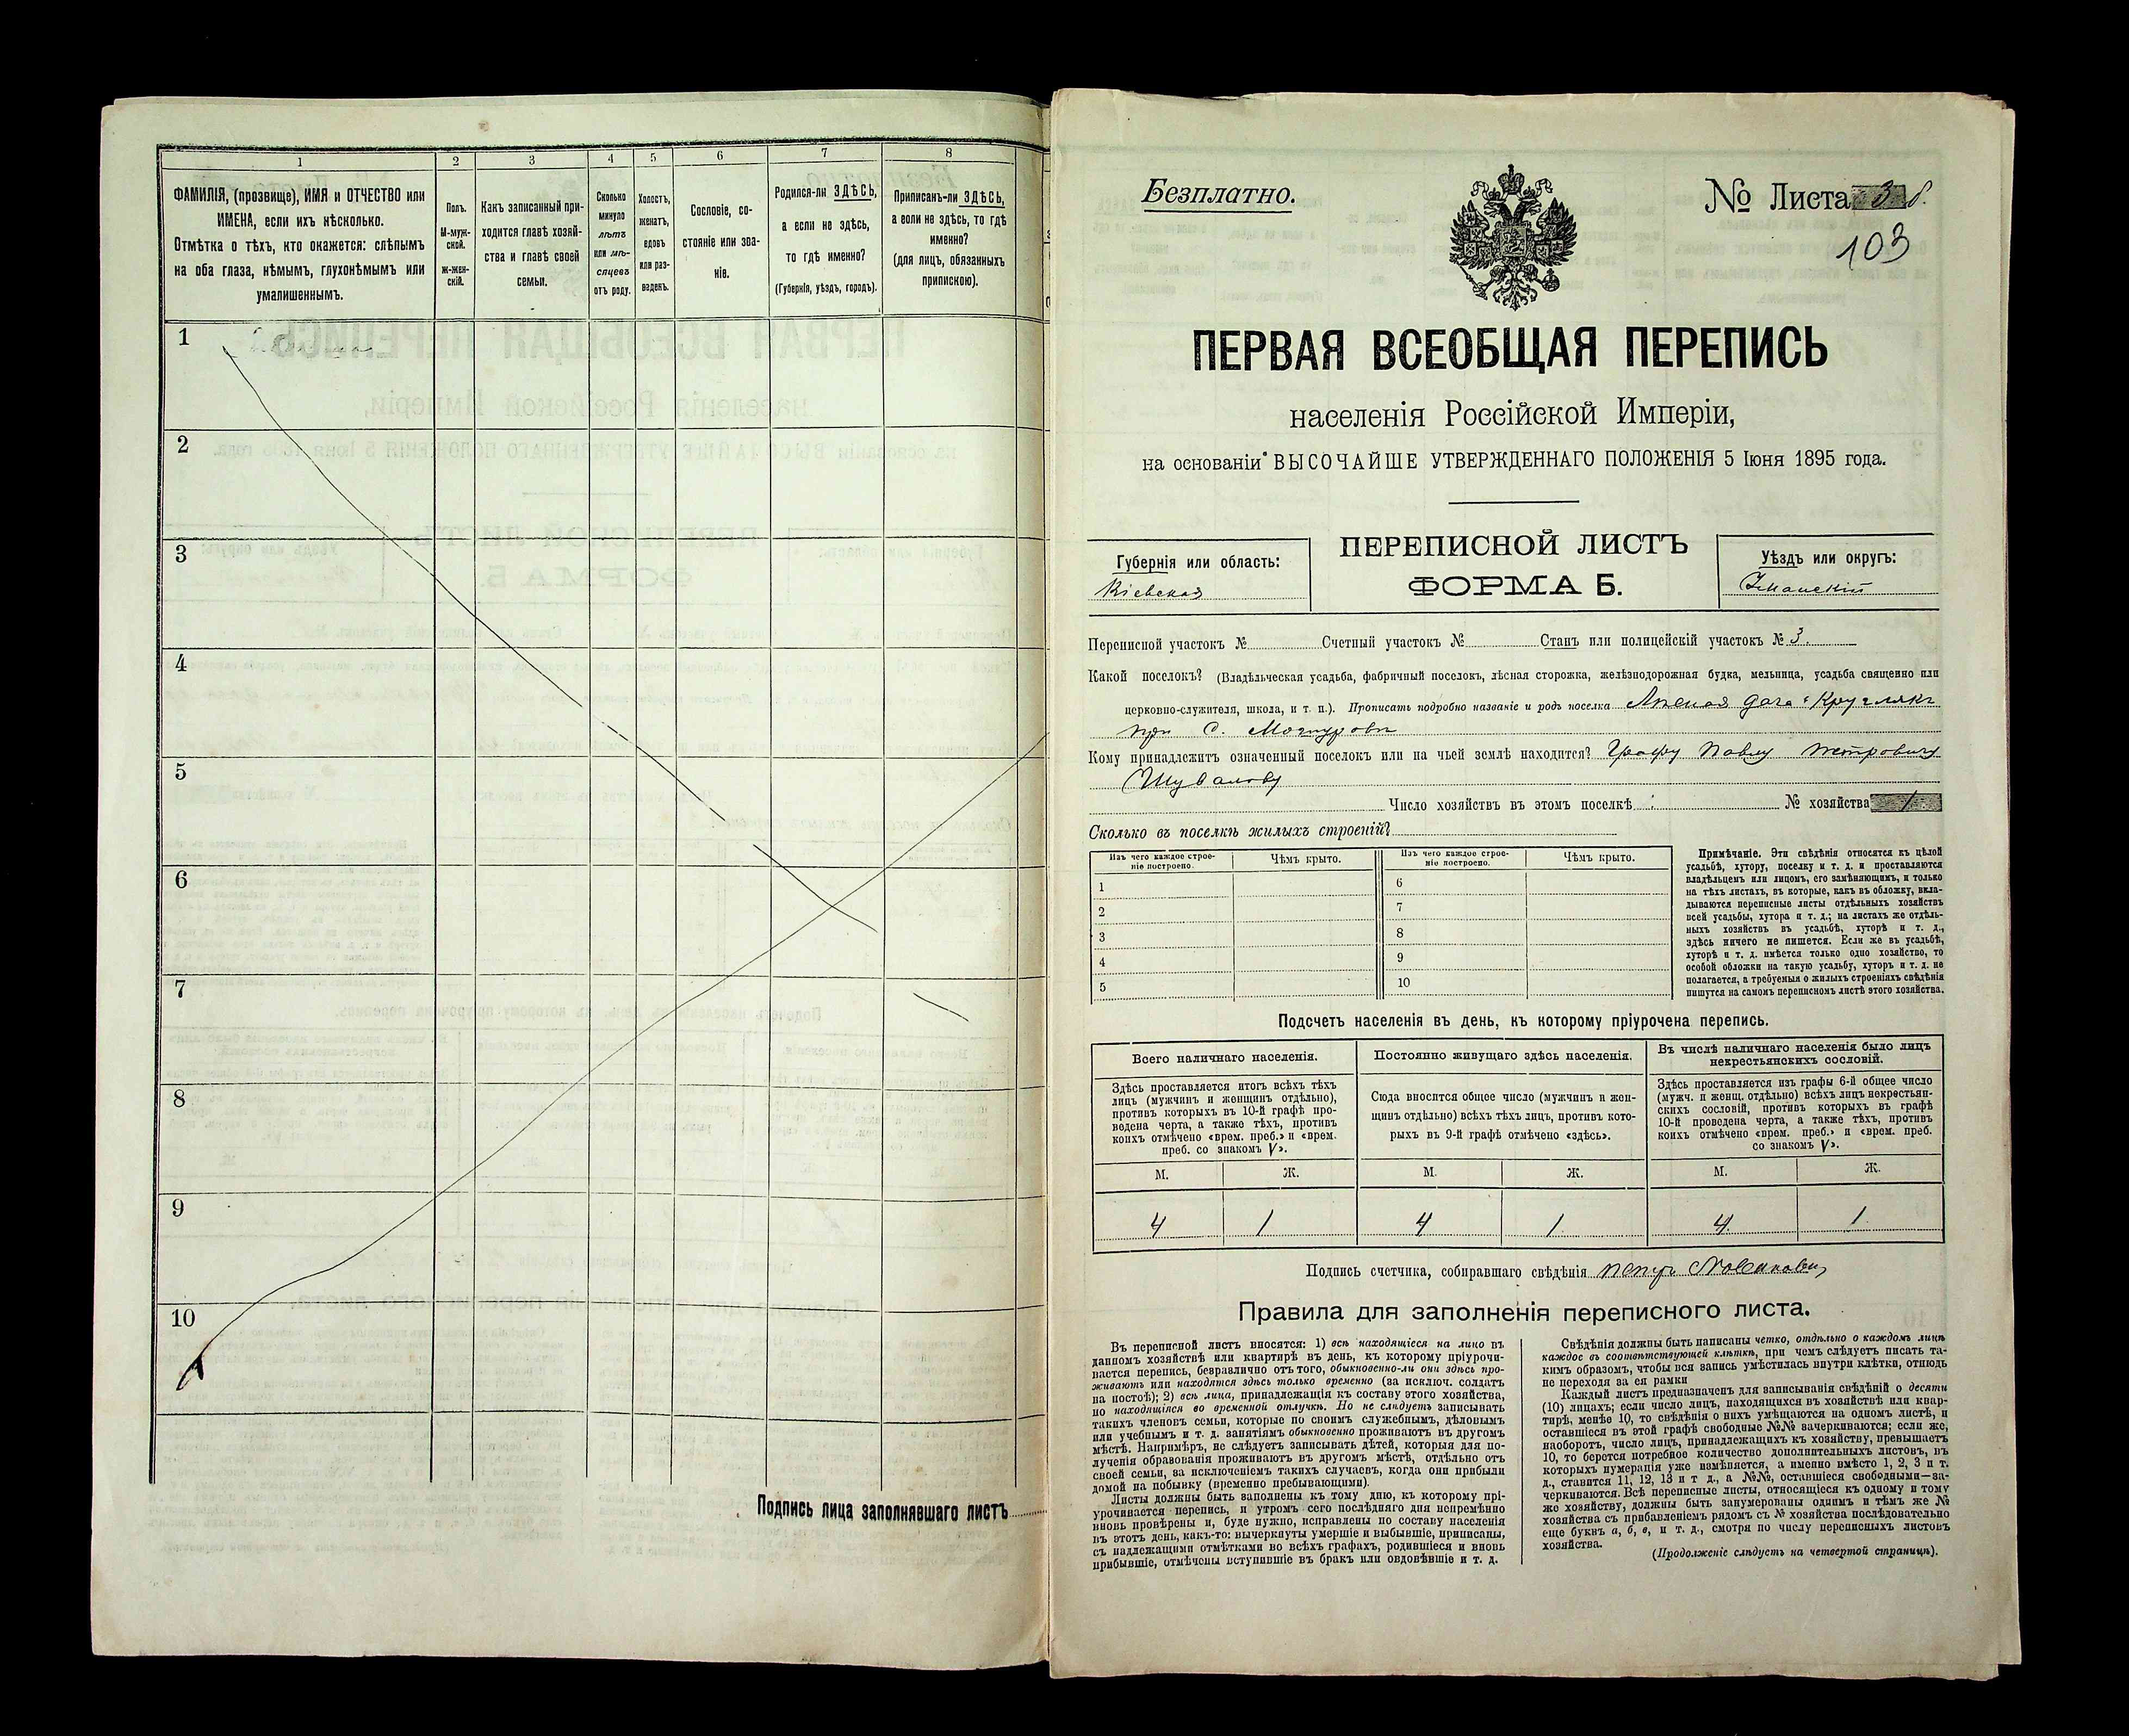 1
2
3
4
5
6
7
8
ФАМИЛІЯ, (прозвище), ИМЯ и ОТЧЕСТВО или
ИМЕНА, если ихъ нѣсколько.
Отмѣтка о тѣхъ, кто окажется: слѣпымъ
на оба глаза, нѣмымъ, глухонѣмымъ или
умалишеннымъ.
Полъ.
М-муж-
ской.
Ж-жен-
скій.
Какъ записанный при-
ходится главѣ хозяй-
ства и главѣ своей
семьи.
Сколько
минуло
лѣтъ
или мѣ-
сяцевъ
отъ роду.
Холостъ,
женатъ,
вдовъ
или раз-
веденъ.
Сословіе, со-
стояніе или зва-
ніе.
Родился-ли ЗДѢСЬ,
а если не здѣсь,
то гдѣ именно?
(Губернія, уѣздъ, городъ).
Приписанъ-ли ЗДѢСЬ,
а если не здѣсь, то гдѣ
именно?
(для лицъ, обязанныхъ
припискою).
1
2
3
4
5
6
7
8
9
10
Подпись лица заполнявшаго листъ
Безплатно.
№ Листа 3 б.
103
ПЕРВАЯ ВСЕОБЩАЯ ПЕРЕПИСЬ
населенія Россійской Имперіи,
на основаніи ВЫСОЧАЙШЕ УТВЕРЖДЕННАГО ПОЛОЖЕНІЯ 5 Іюня 1895 года.
ПЕРЕПИСНОЙ ЛИСТЪ
ФОРМА Б.
Губернія или область:
Кіевская
Уѣздъ или округъ:
Уманскій
Переписной участокъ № Счетный участокъ № Станъ или полицейскій участокъ № 3.
Какой поселокъ? (Владѣльческая усадьба, фабричный поселокъ, лѣсная сторожка, желѣзнодорожная будка, мельница, усадьба священно или
церковно-служителя, школа, и т. п.). Прописать подробно названіе и родъ поселка Лѣсная дача "Круглякъ
при с. Могируовѣ
Кому принадлежитъ означенный поселокъ или на чьей землѣ находится? Графу Павлу Петровичу
Шувалову
Число хозяйствъ въ этомъ поселкѣ № хозяйства 1
Сколько въ поселкѣ жилыхъ строеній?
Изъ чего каждое строе-
ніе построено.
Чѣмъ крыто.
Изъ чего каждое строе-
ніе построено.
Чѣмъ крыто.
1
2
3
4
5
6
7
8
9
10
Примѣчаніе. Эти свѣдѣнія относятся къ цѣлой
усадьбѣ, хутору, поселку и т. д. и проставляются
владѣльцемъ или лицомъ, его замѣняющимъ, и только
на тѣхъ листахъ, въ которые, какъ въ обложку, вкла-
дываются переписные листы отдѣльныхъ хозяйствъ
всей усадьбы, хутора и т. д.; на листахъ же отдѣль-
ныхъ хозяйствъ въ усадьбѣ, хуторѣ и т. д.,
здѣсь ничего не пишется. Если же въ усадьбѣ,
хуторѣ и т. д. имѣется только одно хозяйство, то
особой обложки на такую усадьбу, хуторъ и т. д. не
полагается, а требуемыя о жилыхъ строеніяхъ свѣдѣнія
пишутся на самомъ переписномъ листѣ этого хозяйства.
Подсчетъ населенія въ день, къ которому пріурочена перепись.
Всего наличнаго населенія.
Здѣсь проставляется итогъ всѣхъ тѣхъ
лицъ (мужчинъ и женщинъ отдѣльно),
противъ которыхъ въ 10-й графѣ про-
ведена черта, а также тѣхъ, противъ
коихъ отмѣчено «врем. преб.» и «врем.
преб. со знакомъ V».
Постоянно живущаго здѣсь населенія.
Сюда вносится общее число (мужчинъ и жен-
щинъ отдѣльно) всѣхъ тѣхъ лицъ, противъ кото-
рыхъ въ 9-й графѣ отмѣчено «здѣсь».
Въ числѣ наличнаго населенія было лицъ
некрестьянскихъ сословій.
Здѣсь проставляется изъ графы 6-й общее число
(мужч. и женщ. отдѣльно) всѣхъ лицъ некрестьян-
скихъ сословій, противъ которыхъ въ графѣ
10-й проведена черта, а также тѣхъ, противъ
коихъ отмѣчено «врем. преб.» и «врем. преб.
со знакомъ V».
М. Ж. М. Ж. М. Ж.
4 1 4 1 4 1
Подпись счетчика, собиравшаго свѣдѣнія Петръ
Правила для заполненія переписного листа.
Въ переписной листъ вносятся: 1) всѣ находящіеся на лицо въ
данномъ хозяйствѣ или квартирѣ въ день, къ которому пріурочи-
вается перепись, безразлично отъ того, обыкновенно-ли они здѣсь про-
живаютъ или находятся здѣсь только временно (за исключ. солдатъ
на постоѣ); 2) всѣ лица, принадлежащія къ составу этого хозяйства,
но находящіяся во временной отлучкѣ. Но не слѣдуетъ записывать
такихъ членовъ семьи, которые по своимъ служебнымъ, дѣловымъ
или учебнымъ и т. д. занятіямъ обыкновенно проживаютъ въ другомъ
мѣстѣ. Напримѣръ, не слѣдуетъ записывать дѣтей, которыя для по-
лученія образованія проживаютъ въ другомъ мѣстѣ, отдѣльно отъ
своей семьи, за исключеніемъ такихъ случаевъ, когда они прибыли
домой на побывку (временно пребывающими).
Листы должны быть заполнены къ тому дню, къ которому прі-
урочивается перепись, и утромъ сего послѣдняго дня непремѣнно
вновь провѣрены и, буде нужно, исправлены по составу населенія
въ этотъ день, какъ-то: вычеркнуты умершіе и выбывшіе, приписаны,
съ надлежащими отмѣтками во всѣхъ графахъ, родившіеся и вновь
прибывшіе, отмѣчены вступившіе въ бракъ или овдовѣвшіе и т. д.
Свѣдѣнія должны быть написаны четко, отдѣльно о каждомъ лицѣ
каждое въ соотвѣтствующей клѣткѣ, при чемъ слѣдуетъ писать та-
кимъ образомъ, чтобы вся запись умѣстилась внутри клѣтки, отнюдь
не переходя за ея рамки
Каждый листъ предназначенъ для записыванія свѣдѣній о десяти
(10) лицахъ; если число лицъ, находящихся въ хозяйствѣ или квар-
тирѣ, менѣе 10, то свѣдѣнія о нихъ умѣщаются на одномъ листѣ, и
оставшіеся въ этой графѣ свободные №№ зачеркиваются; если же,
наоборотъ, число лицъ, принадлежащихъ къ хозяйству, превышаетъ
10, то берется потребное количество дополнительныхъ листовъ, въ
которыхъ нумерація уже измѣняется, а именно вмѣсто 1, 2, 3 и т.
д., ставится 11, 12, 13 и т д., а №№, оставшіеся свободными—за-
черкиваются. Всѣ переписные листы, относящіеся къ одному и тому
же хозяйству, должны быть занумерованы однимъ и тѣмъ же №
хозяйства съ прибавленіемъ рядомъ съ № хозяйства послѣдовательно
еще буквъ а, б, в, и т. д., смотря по числу переписныхъ листовъ
хозяйства.
(Продолженіе слѣдуетъ на четвертой страницѣ).